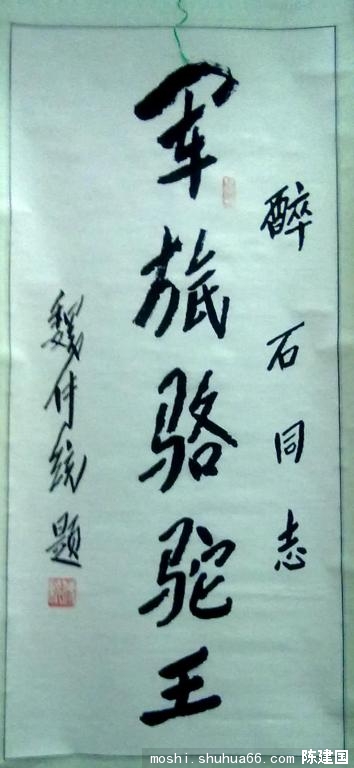 醉石同志
军旅骆驼王
魏传统题
moshi.shuhua66.com 陈建国